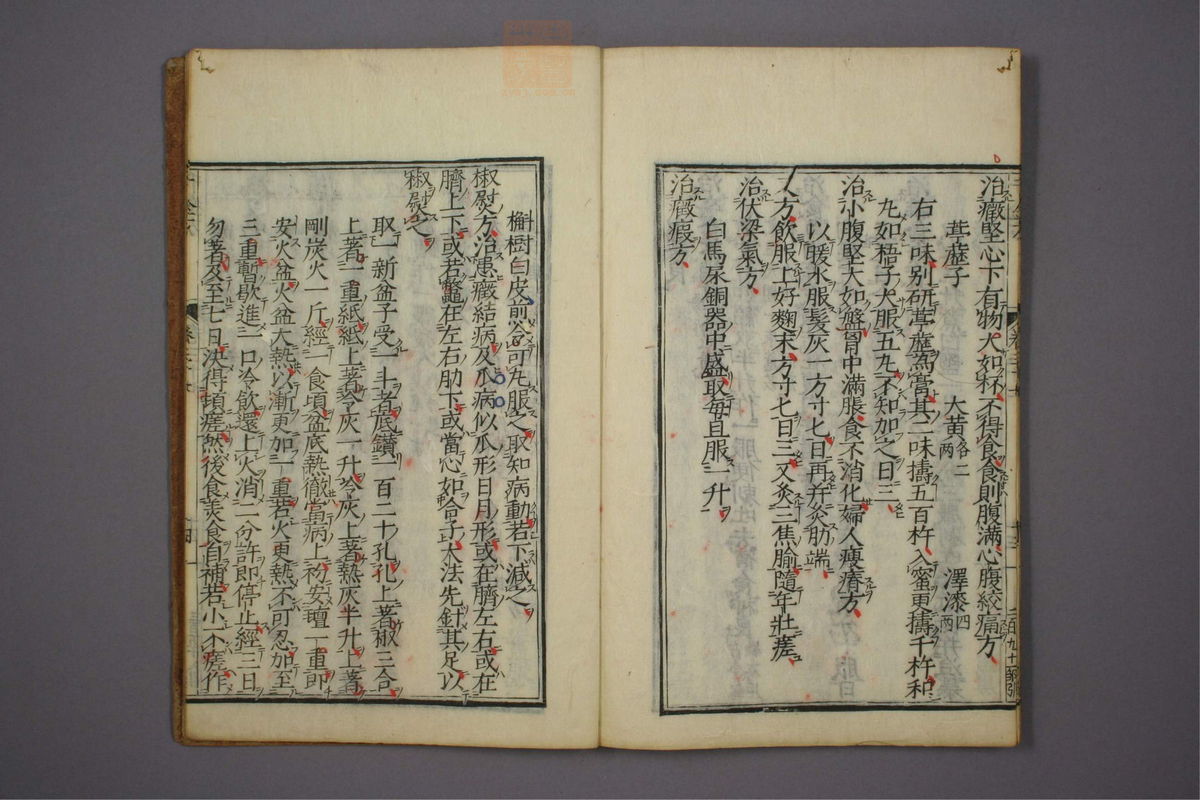 治癥堅心下有物大如杯不得食食則腹滿心腹絞痛方
葶藶子 大黄各二兩 澤漆四兩
右三味别研葶藶爲膏其二味擣五百杵入蜜更擣千杵和
丸如梧子大服五丸不知加之日三
治小腹堅大如盤胷中滿脹食不消化婦人瘦瘠方
以暖水服髪灰一方寸匕日再并灸肋端
又方飲服上好麴末方寸匕日三又灸三焦腧隨年壯瘥
治伏梁氣方
白馬尿銅器中盛取每旦服一升
治癥瘕方
槲樹白皮煎令可丸服之取知病動若下減之
椒熨方治患癥結病及瓜病似瓜形日月形或在臍左右或在
臍上下或若鼈在左右肋下或當心如合子大法先針其足以
椒熨之
取一新盆子受一斗者底鑚一百二十孔孔上著椒三合
上著一重紙紙上著冷灰一升冷灰上著熱灰半升上著
剛炭火一斤經一食頃盆底熱徹當病上初安氊一重即
安火盆火盆大熱以漸更加一重若火更熱不可忍加至
三重暫歇進一口冷飲還上火消二分許即停止經三日
勿著及至七日決得頓瘥然後食美食自補若小不瘥作